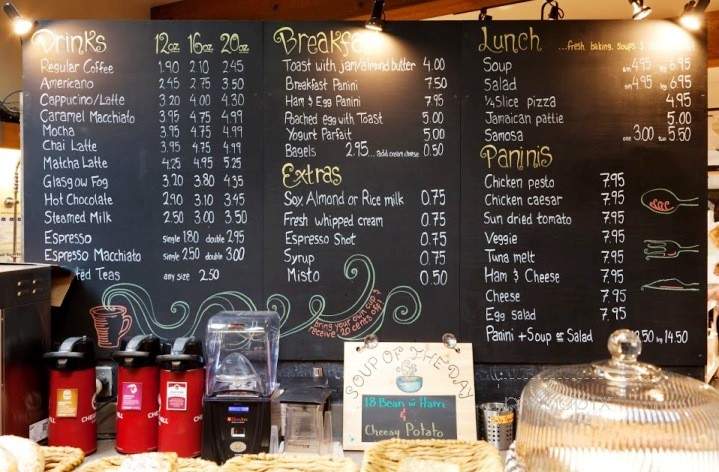 Drinks 12oz 16oz 20oz
Regular Coffee 1.90 2.10 2.45
Americano 2.45 2.75 3.50
Cappucino/Latte 3.20 4.00 4.30
Caramel Macchiato 3.95 4.75 4.99
Mocha 3.95 4.75 4.99
Chai Latte 3.95 4.75 4.99
Matcha Latte 4.25 4.95 5.25
Glasgow Fog 3.20 3.80 4.35
Hot Chocolate 2.90 3.10 3.45
Steamed Milk 2.50 3.00 3.50
Espresso single 1.80 double 2.95
Espresso Macchiato single 2.50 double 3.00
Teas any size 2.50
Breakfa
Toast with jam/almond butter 4.00
Breakfast Panini 7.50
Ham & Egg Panini 7.95
Poached egg with Toast 5.00
Yogurt Parfait 5.00
Bagels 2.95...add cream cheese 0.50
Extras
Soy, Almond or Rice milk 0.75
Fresh whipped cream 0.75
Espresso Shot 0.75
Syrup 0.75
Misto 0.50
bring your own cup &
receive 20 cents off!
Lunch ...fresh baking, soups &
Soup sm 4.95 lg 6.95
Salad sm 4.95 lg 6.95
1/4 Slice pizza 4.95
Jamaican pattie 5.00
Samosa one 3.00 two 5.50
Paninis
Chicken pesto 7.95
Chicken caesar 7.95
Sun dried tomato 7.95
Veggie 7.95
Tuna melt 7.95
Ham & Cheese 7.95
Cheese 7.95
Egg salad 7.95
Panini + Soup or Salad 12.50 lg 14.50
SOUP OF THE DAY
18 Bean w Ham
&
Cheesy Potato